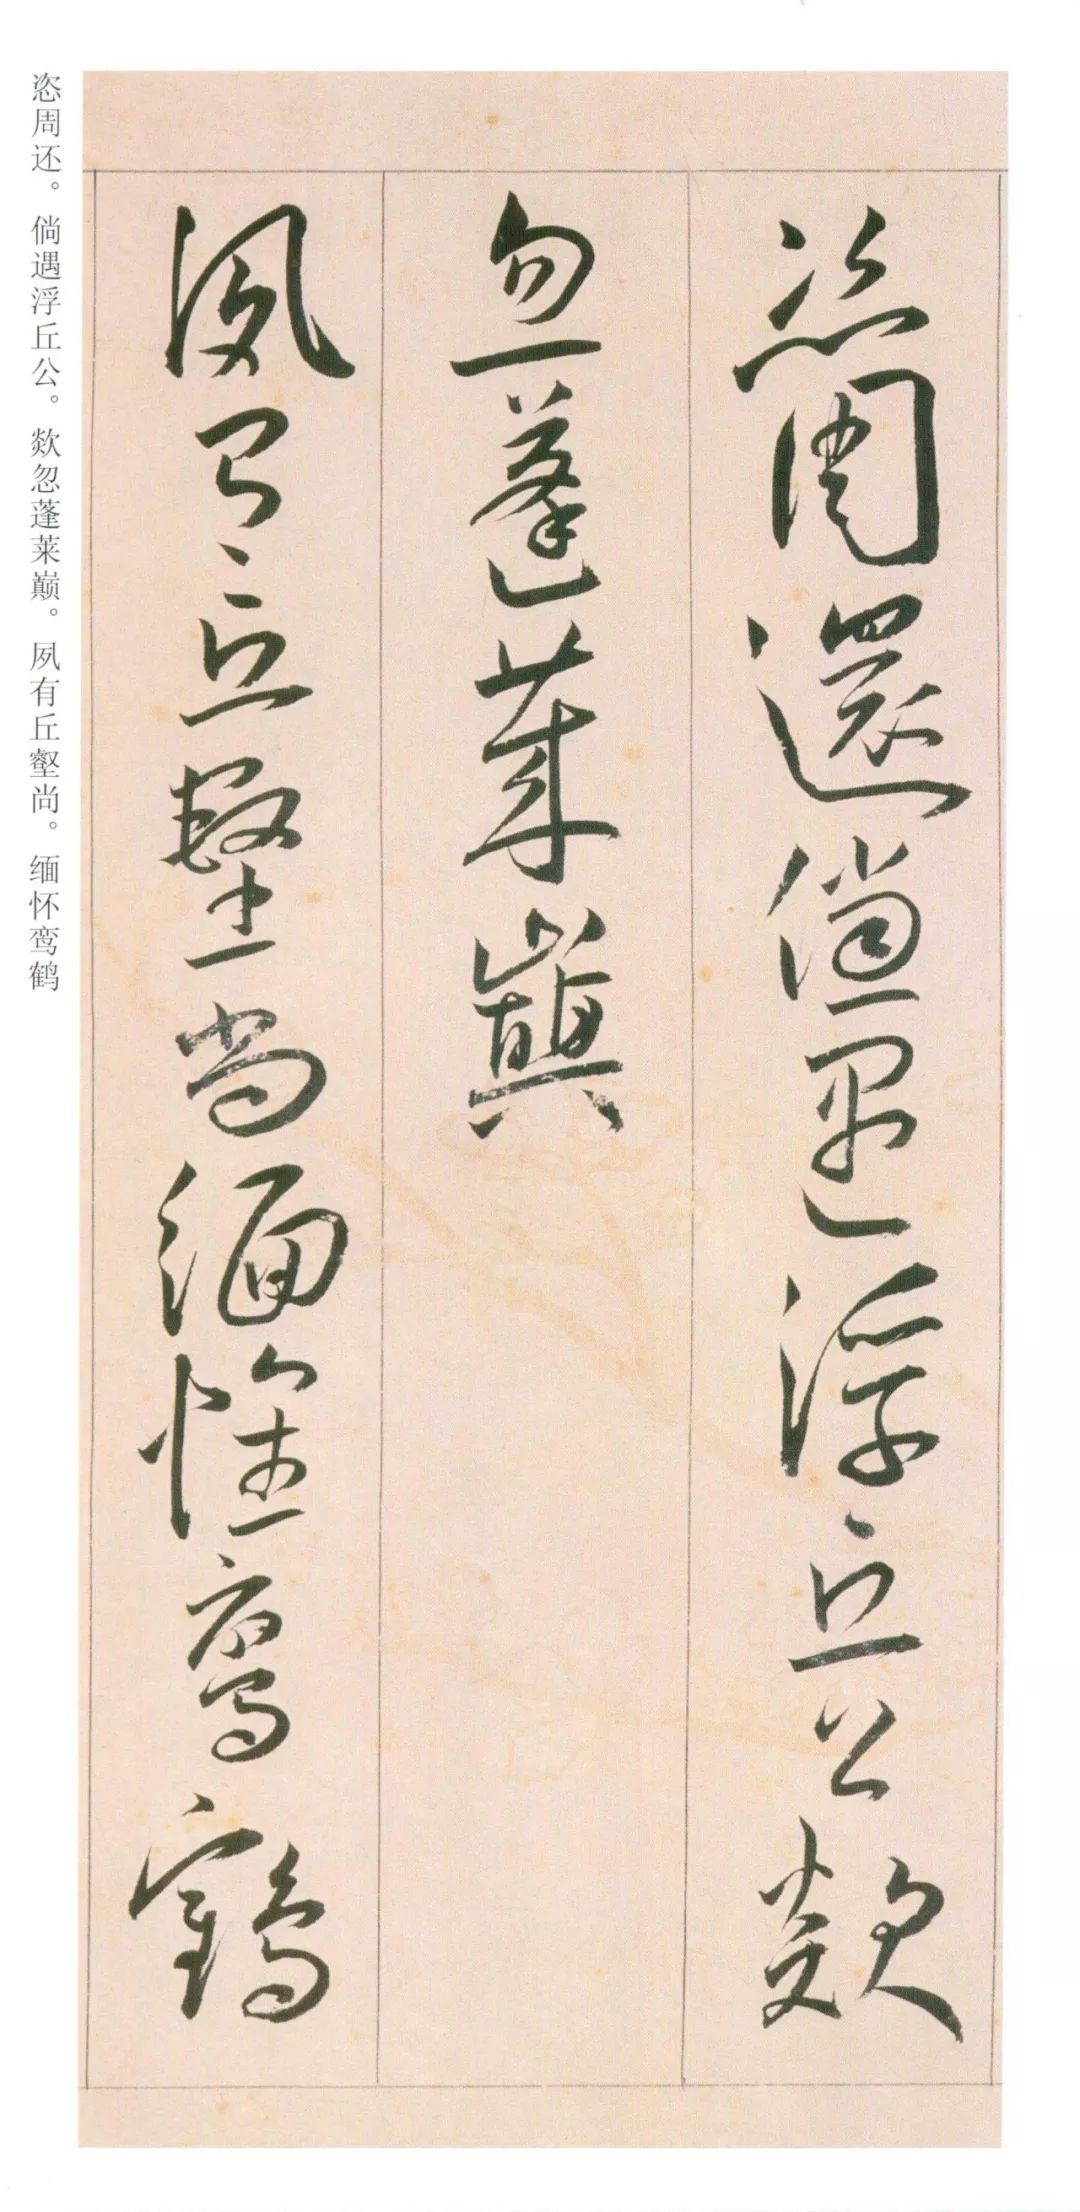 恣周還倘遇浮丘公欻
忽蓬萊巔
夙有丘壑尚緬懷鸞鶴
恣周还。倘遇浮丘公。欻忽蓬莱巅。夙有丘壑尚。缅怀鸾鹤